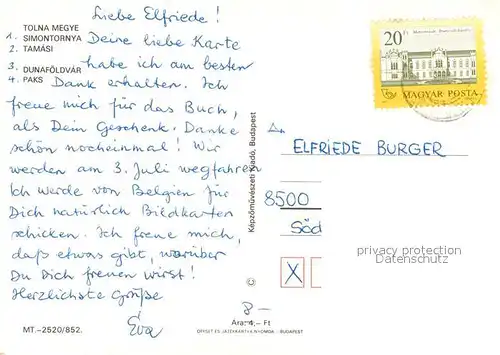 TOLNA MEGYE
1. SIMONTORNYA
2. TAMÁSI
3. DUNAFÖLDVÁR
4. PAKS
Liebe Elfriede!
Deine liebe Karte
habe ich am besten
Dank erhalten. Ich
freue mich für das Buch,
als Dein Geschenk. Danke
schön nocheinmal! Wir
werden am 3. Juli wegfahren
Ich werde von Belgien für
Dich natürlich Bildkarten
schicken. Ich freue mich,
daß etwas gibt, worüber
Du Dich freuen wirst!
Herzlichste Grüße
Éva
MT.-2520/852.
Képzőművészeti Kiadó, Budapest
20 Ft
MAGYAR POSTA
An
ELFRIEDE BURGER
8500
Söd
privacy protection
Datenschutz
X
8-
Ára: 4,- Ft
OFFSET ÉS JÁTÉKKÁRTYA NYOMDA - BUDAPEST